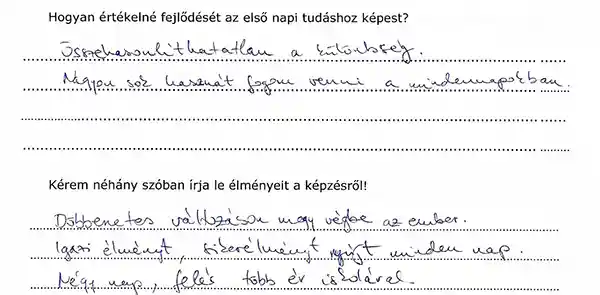 Hogyan értékelné fejlődését az első napi tudáshoz képest?
Összehasonlíthatatlan a különbség.
Nagyon sok hasznát fogom venni a mindennapokban.
Kérem néhány szóban írja le élményeit a képzésről!
Döbbenetes változáson megy végbe az ember.
Igazi élményt, sikerélményt nyújt minden nap.
Négy nap, felés több év iskolával.